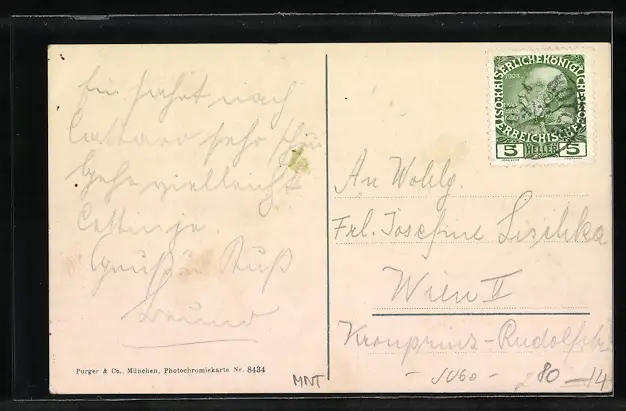 Ein fahrt nach
Cattaro sehr schön
Gehe vielleicht
Cettinje.
Gruß u Kuß
KAISERLICHE KÖNIGLICHE
ÖSTERREICHISCHE
1908
5 HELLER 5
An Wohlg.
Frl. Josefine Lischka
Wien II
Kronprinz-Rudolfstr
Purger & Co., München, Photochromiekarte Nr. 8434
MNT
- JUGO -
80 - 14